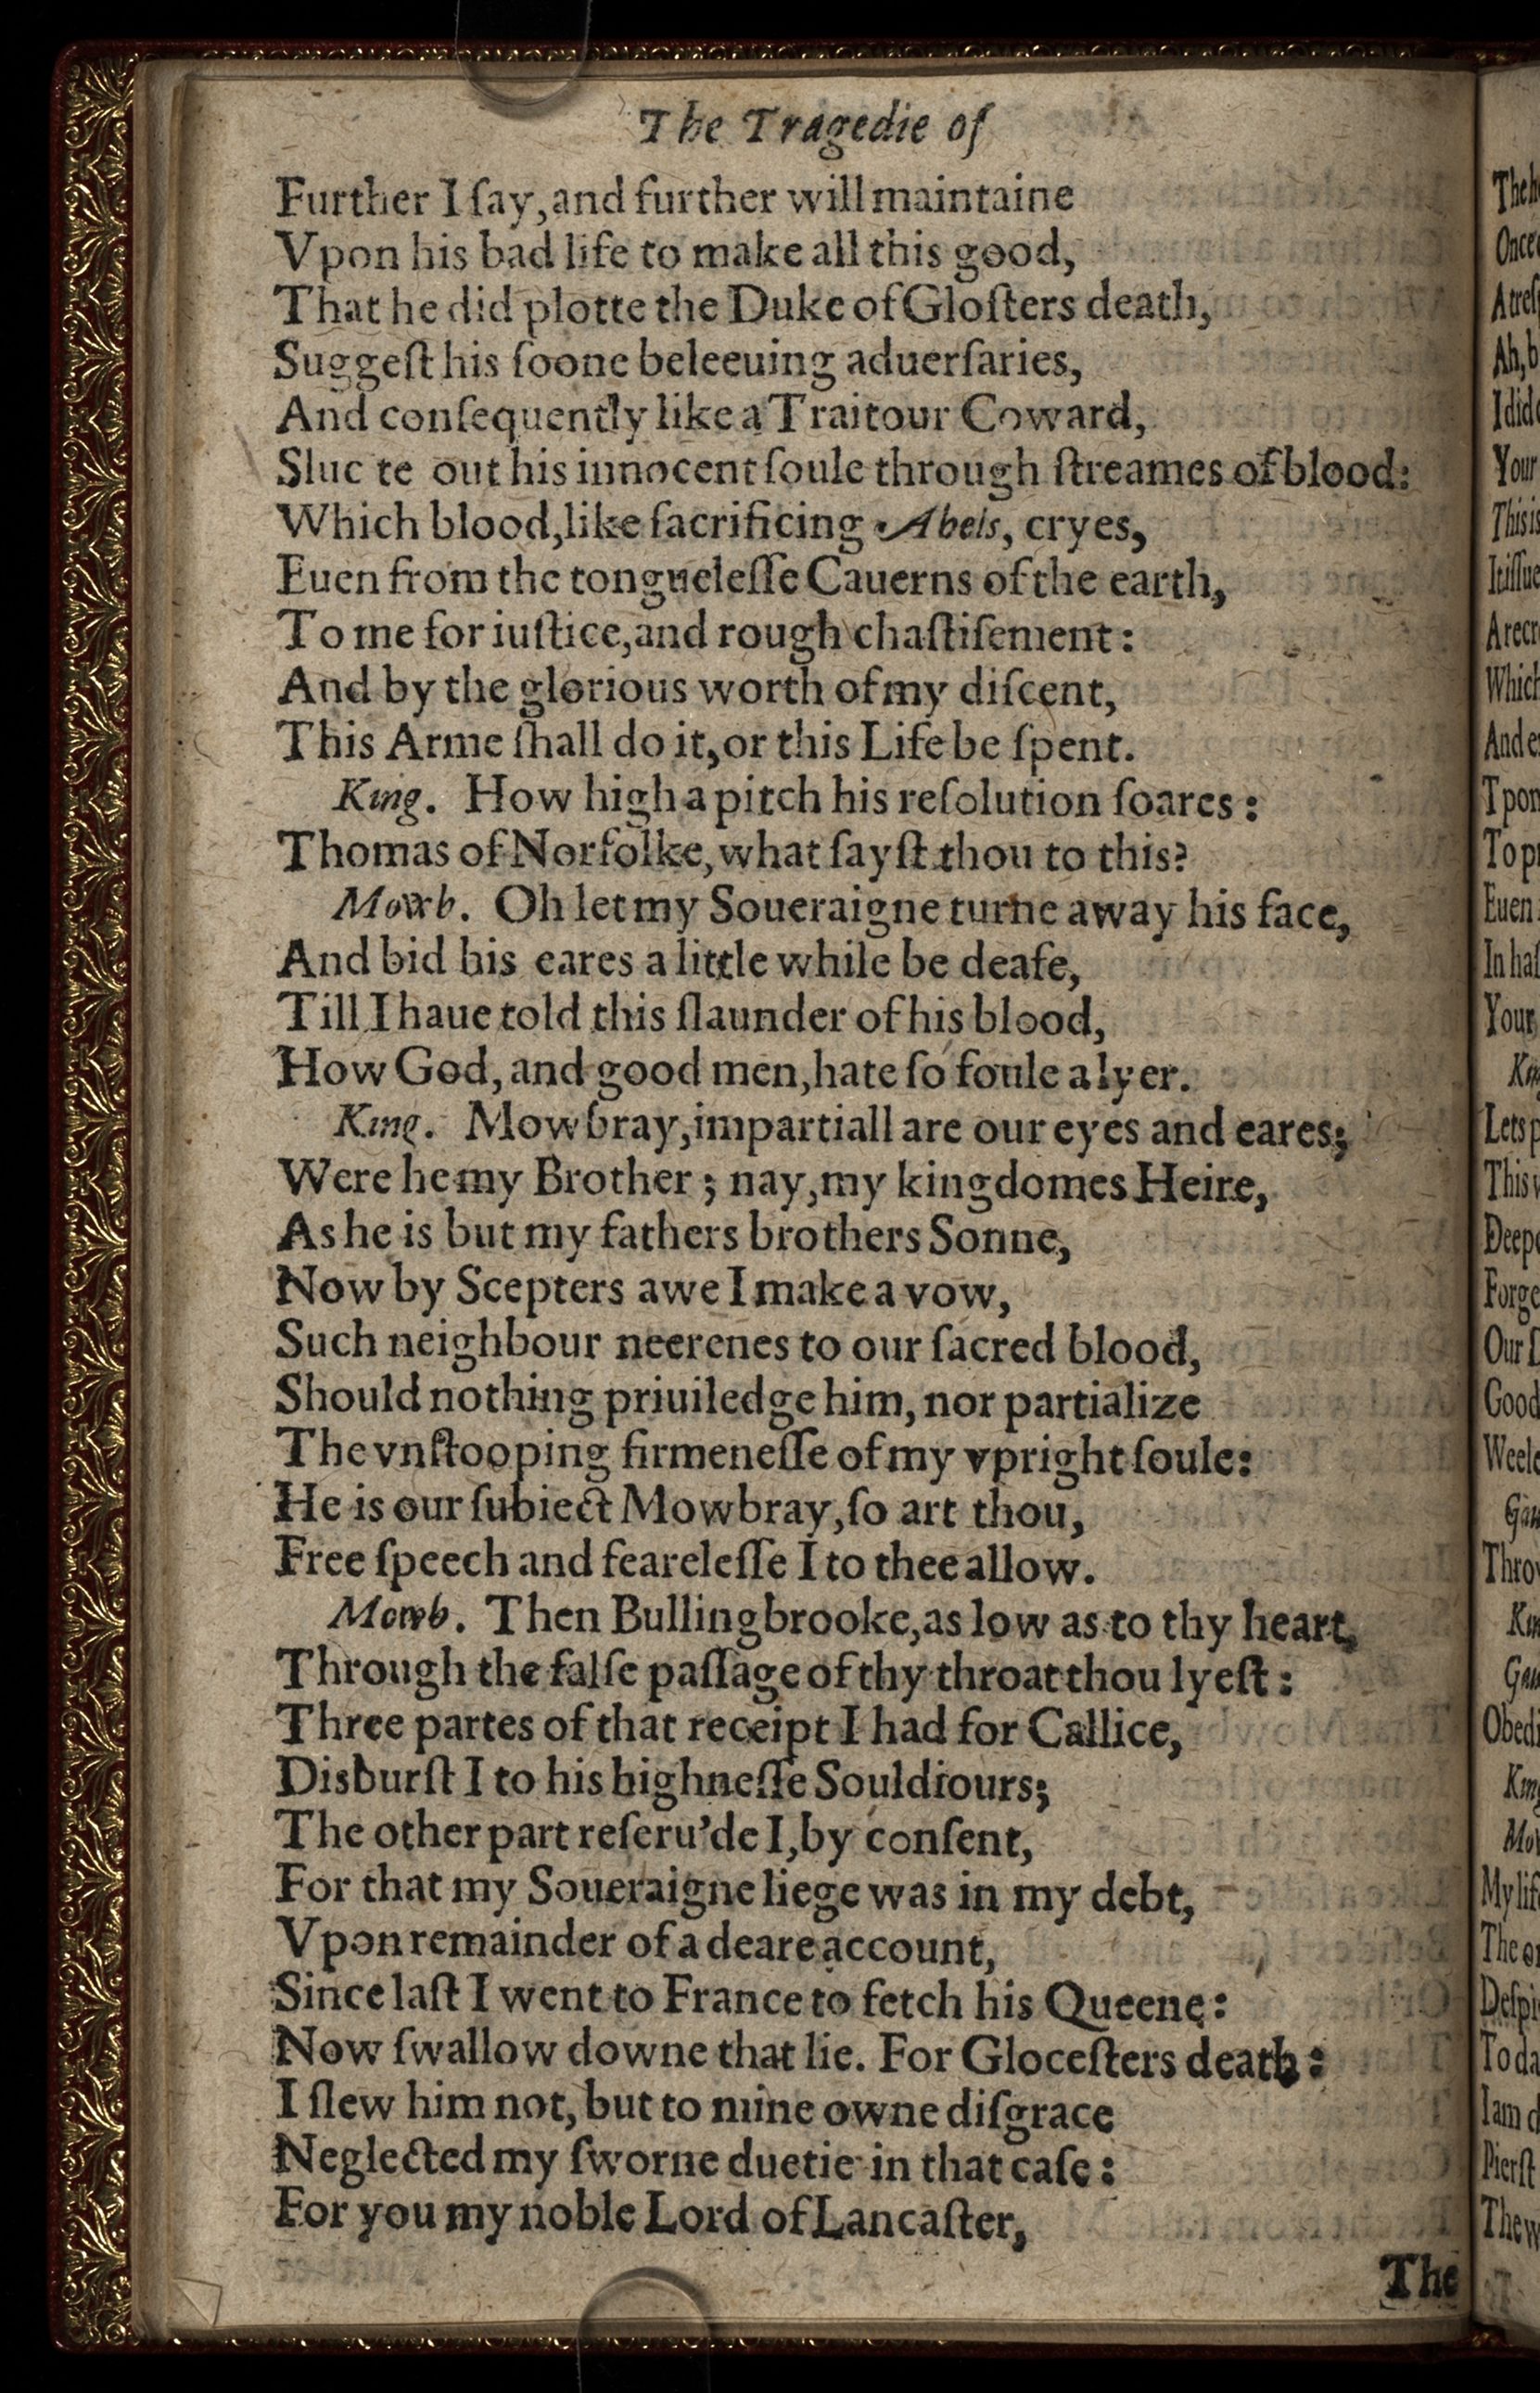 The Tragedie of
Further I ſay, and further will maintaine
Vpon his bad life to make all this good,
That he did plotte the Duke of Gloſters death,
Suggeſt his ſoone beleeuing aduerſaries,
And conſequently like a Traitour Coward,
Sluc te out his innocent ſoule through ſtreames of blood:
Which blood, like ſacrificing Abels, cryes,
Euen from the tongueleſſe Cauerns of the earth,
To me for iuſtice, and rough chaſtiſement:
And by the glorious worth of my diſcent,
This Arme ſhall do it, or this Life be ſpent.
King. How high a pitch his reſolution ſoares:
Thomas of Norfolke, what ſayſt thou to this?
Mowb. Oh let my Soueraigne turne away his face,
And bid his eares a little while be deafe,
Till I haue told this ſlaunder of his blood,
How God, and good men, hate ſo foule a lyer.
King. Mowbray, impartiall are our eyes and eares;
Were he my Brother; nay, my kingdomes Heire,
As he is but my fathers brothers Sonne,
Now by Scepters awe I make a vow,
Such neighbour neerenes to our ſacred blood,
Should nothing priuiledge him, nor partialize
The vnſtooping firmeneſſe of my vpright ſoule:
He is our ſubiect Mowbray, ſo art thou,
Free ſpeech and feareleſſe I to thee allow.
Mowb. Then Bullingbrooke, as low as to thy heart,
Through the falſe paſſage of thy throat thou lyeſt:
Three partes of that receipt I had for Callice,
Disburſt I to his highneſſe Souldiours;
The other part reſeru'de I, by conſent,
For that my Soueraigne liege was in my debt,
Vpon remainder of a deare account,
Since laſt I went to France to fetch his Queene:
Now ſwallow downe that lie. For Gloceſters death:
I ſlew him not, but to mine owne diſgrace
Neglected my ſworne duetie in that caſe:
For you my noble Lord of Lancaſter,
The